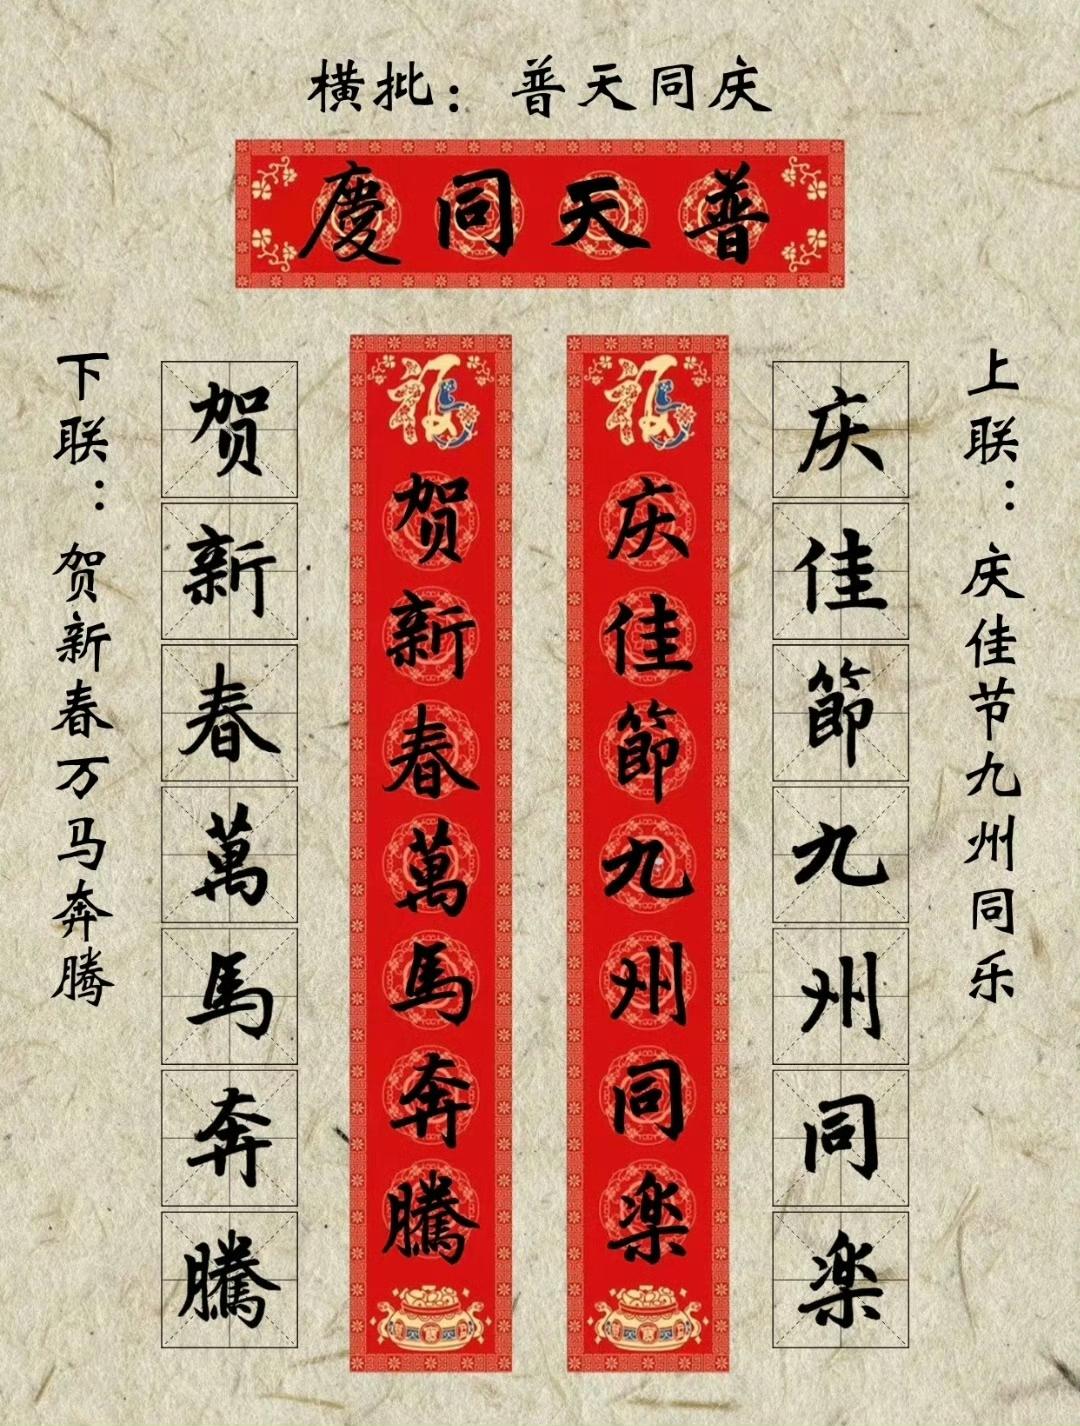 横批：普天同庆
普天同慶
上联：庆佳节九州同乐
庆佳節九州同楽
福
庆佳節九州同楽
福
贺新春萬馬奔騰
贺新春萬馬奔騰
下联：贺新春万马奔腾